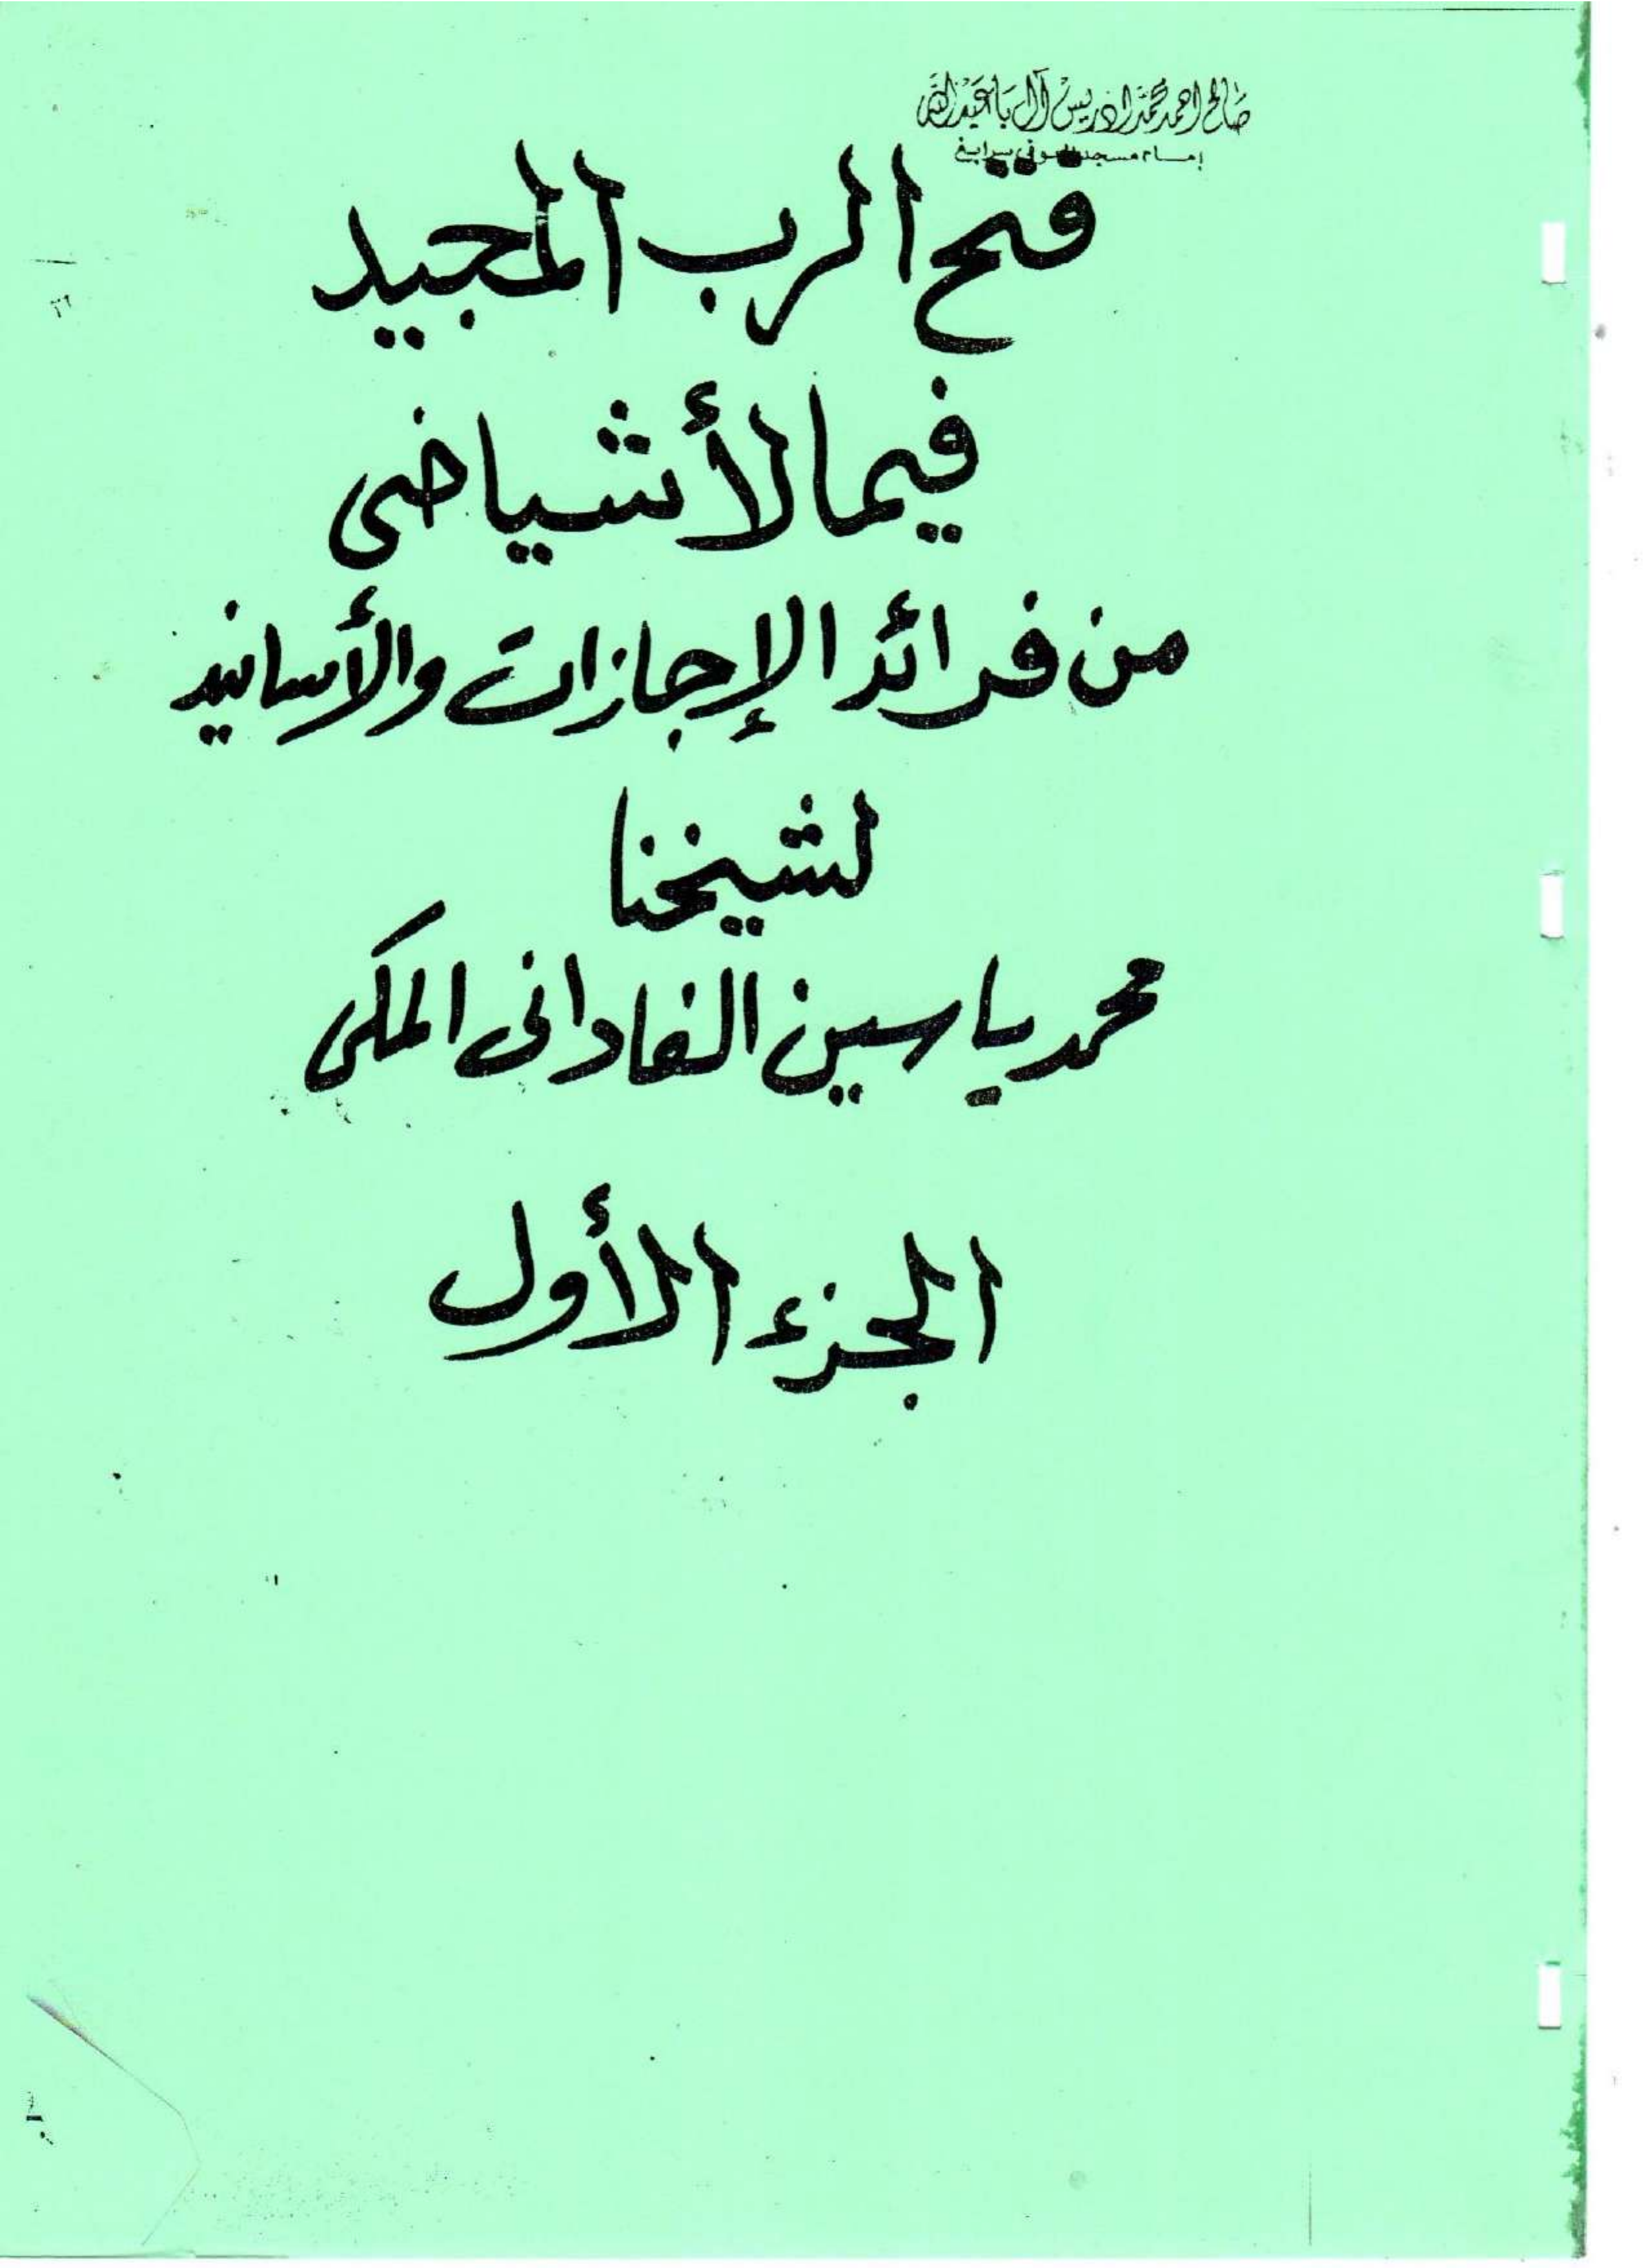 صالح احمد محمد ادريس آل باعبدالله
إمام مسجد برابغ
فتح الرب المجيد
فيما لأشياخى
من فرائد الإجازات والأسانيد
لشيخنا
محمد ياسين الفادانى المكى
الجزء الأول